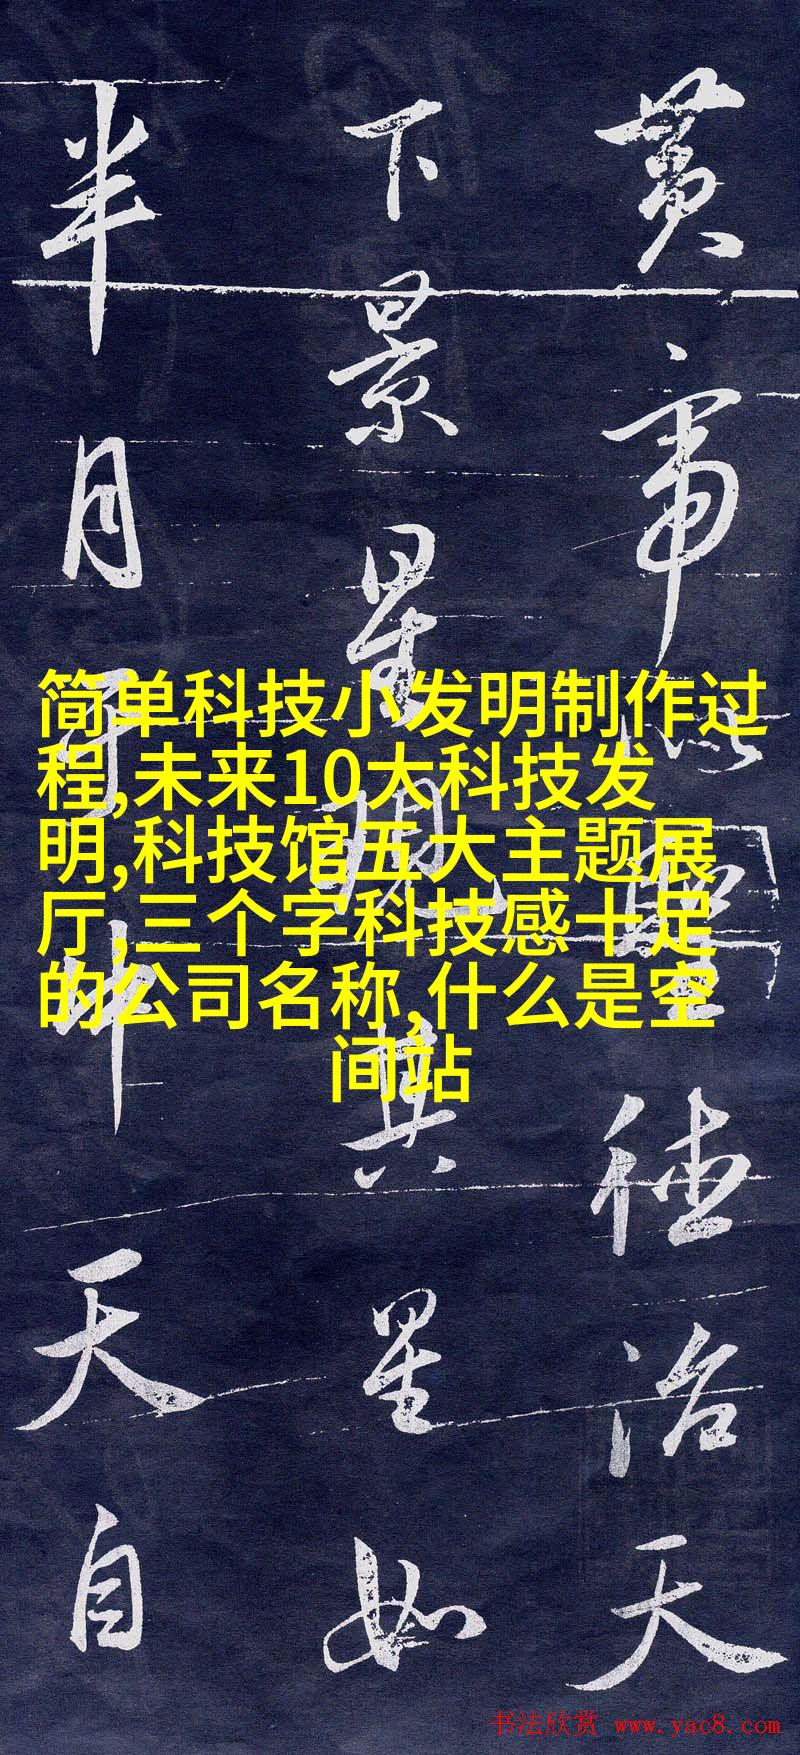 黄帝心聖德治天
下景星現其星如
半月于中天自
简单科技小发明制作过
程,未来10大科技发
明,科技馆五大主题展
厅,三个字科技感十足
的公司名称,什么是空
间站
书法欣赏 www.yac8.com